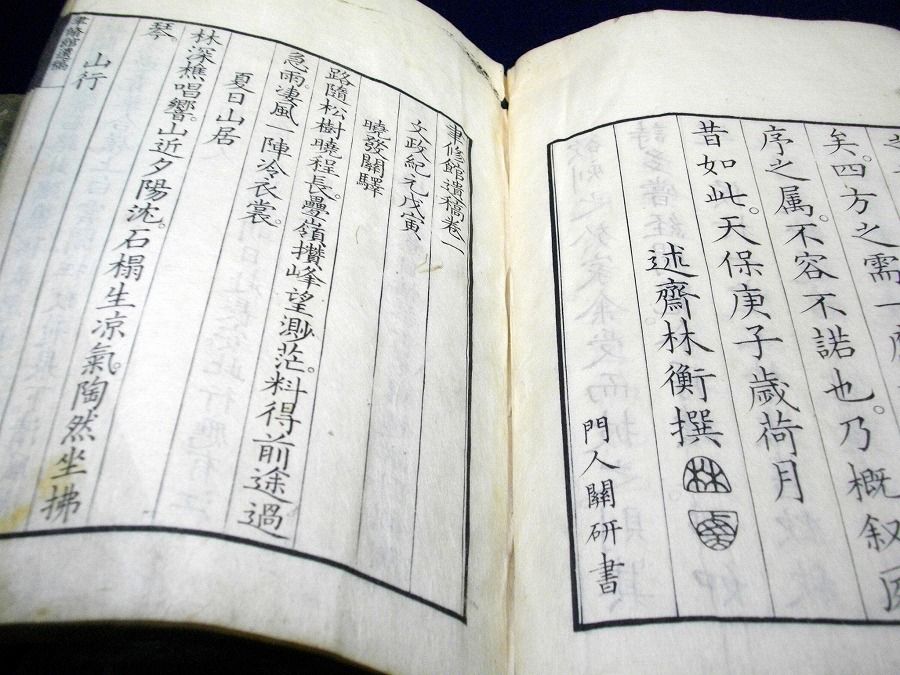 矣。四方之需一
序之属。不容不諾也。乃概叙
昔如此。天保庚子歳荷月
述齋林衡撰
門人關研書
聿修館遺稿卷一
文政紀元戊寅
曉發關驛
路隨松樹曉程長。疊嶺攅峰望渺茫。料得前途過
急雨。凄風一陣冷衣裳。
夏日山居
林深樵唱響。山近夕陽沈。石榻生涼氣。陶然坐拂
琴。
山行
聿修館遺稿